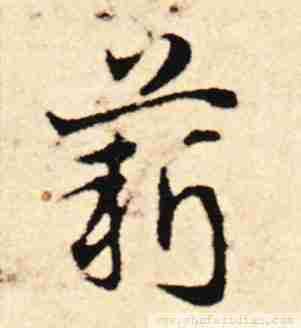 薪
www.shufazidian.com